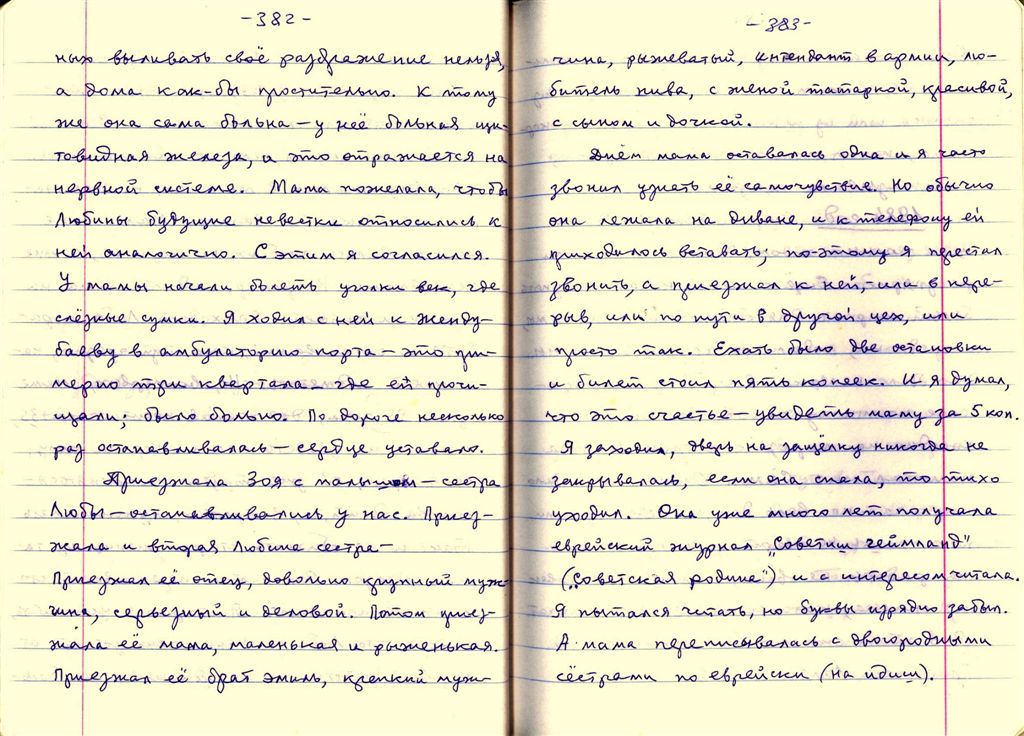 -382-
ных выливать своё раздражение нельзя,
а дома как-бы простительно. К тому
же она сама больна – у неё больная щи-
товидная железа, и это отражается на
нервной системе. Мама пожелала, чтобы
Любины будущие невестки относились к
ней аналогично. С этим я согласился.
У мамы начали болеть уголки век, где
слёзные сумки. Я ходил с ней к Женду-
баеву в амбулаторию порта – это при-
мерно три квартала – где ей прочи-
щали; было больно. По дороге несколько
раз останавливалась – сердце уставало.
Приезжала Зоя с малышом – сестра
Любы – останавливались у нас. Приез-
жала и вторая Любина сестра –
Приезжал её отец, довольно крупный муж-
чина, серьезный и деловой. Потом приез-
жала её мама, маленькая и рыженькая.
Приезжал её брат Эмиль, крепкий муж-
-383-
чина, рыжеватый, интендант в армии, лю-
битель пива, с женой татаркой, красивой,
с сыном и дочкой.
Днём мама оставалась одна и я часто
звонил узнать её самочувствие. Но обычно
она лежала на диване, и к телефону ей
приходилось вставать; по-этому я перестал
звонить, а приезжал к ней, – или в пере-
рыв, или по пути в другой цех, или
просто так. Ехать было две остановки
и билет стоил пять копеек. И я думал,
что это счастье – увидеть маму за 5 коп.
Я заходил, дверь на защёлку никогда не
закрывалась, если она спала, то тихо
уходил. Она уже много лет получала
еврейский журнал „Советиш геймланд"
(„Советская родина") и с интересом читала.
Я пытался читать, но буквы изрядно забыл.
А мама переписывалась с двоюродными
сёстрами по еврейски (на идиш).